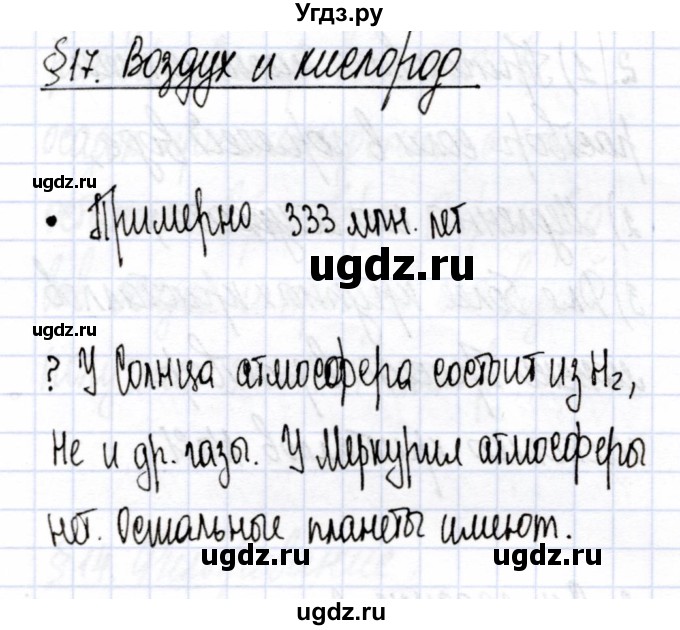 Угдз.ру
§17. Воздух и кислород
ugdz.ru
• Примерно 333 млн. лет
ugdz.ru
ugdz.ru
? У Солнца атмосфера состоит из H₂,
He и др. газы. У Меркурия атмосферы
нет. Остальные планеты имеют.
ugdz.ru ugdz.ru
ugdz.ru